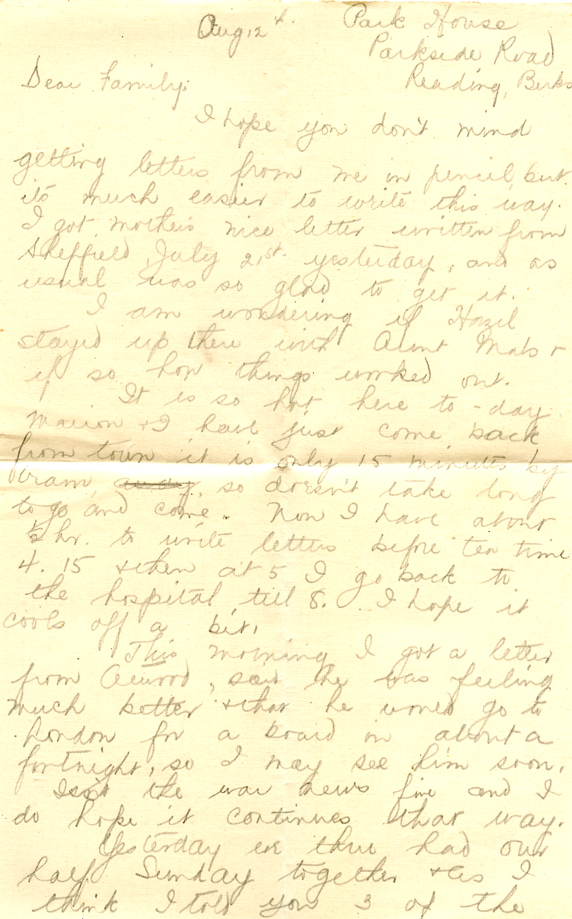 Aug 12th. Park House
Parkside Road
Reading, Berks
Dear Family;
I hope you don't mind
getting letters from me in pencil but
its much easier to write this way.
I got mother's nice letter written from
Sheffield, July 21st. yesterday, and as
usual was so glad to get it.
I am wondering if Hazel
stayed up there with Aunt Mabs &
if so how things worked out.
It is so hot here to-day.
Marion & I have just come back
from town it is only 15 minutes by
tram, so doesn't take long
to go and come. Now I have about
½ hr. to write letters before tea time
4.15 & then at 5 I go back to
the hospital till 8. I hope it
cools off a bit.
This morning I got a letter
from, said he was feeling
much better & that he would go to
London for a board in about a
fortnight, so I may see him soon.
Isn't the war news fine and I
do hope it continues that way.
Yesterday we three had our
half Sunday together & as I
think I told you 3 of the